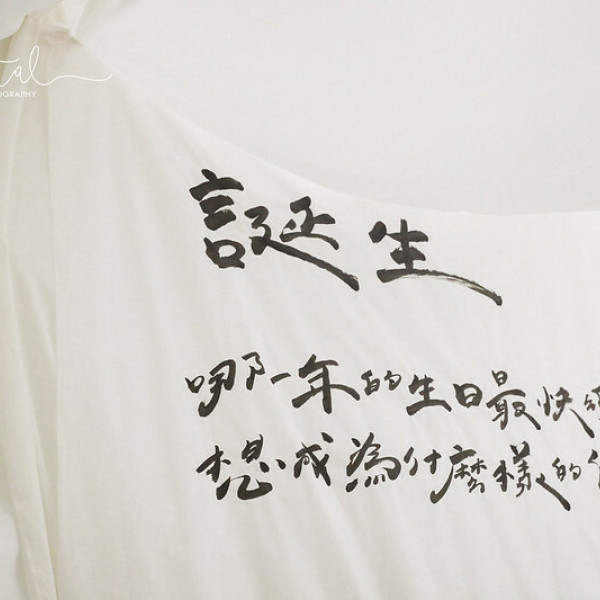 tal
OGRAPHY
誕生
哪一年的生日最快
想成為什麼樣的